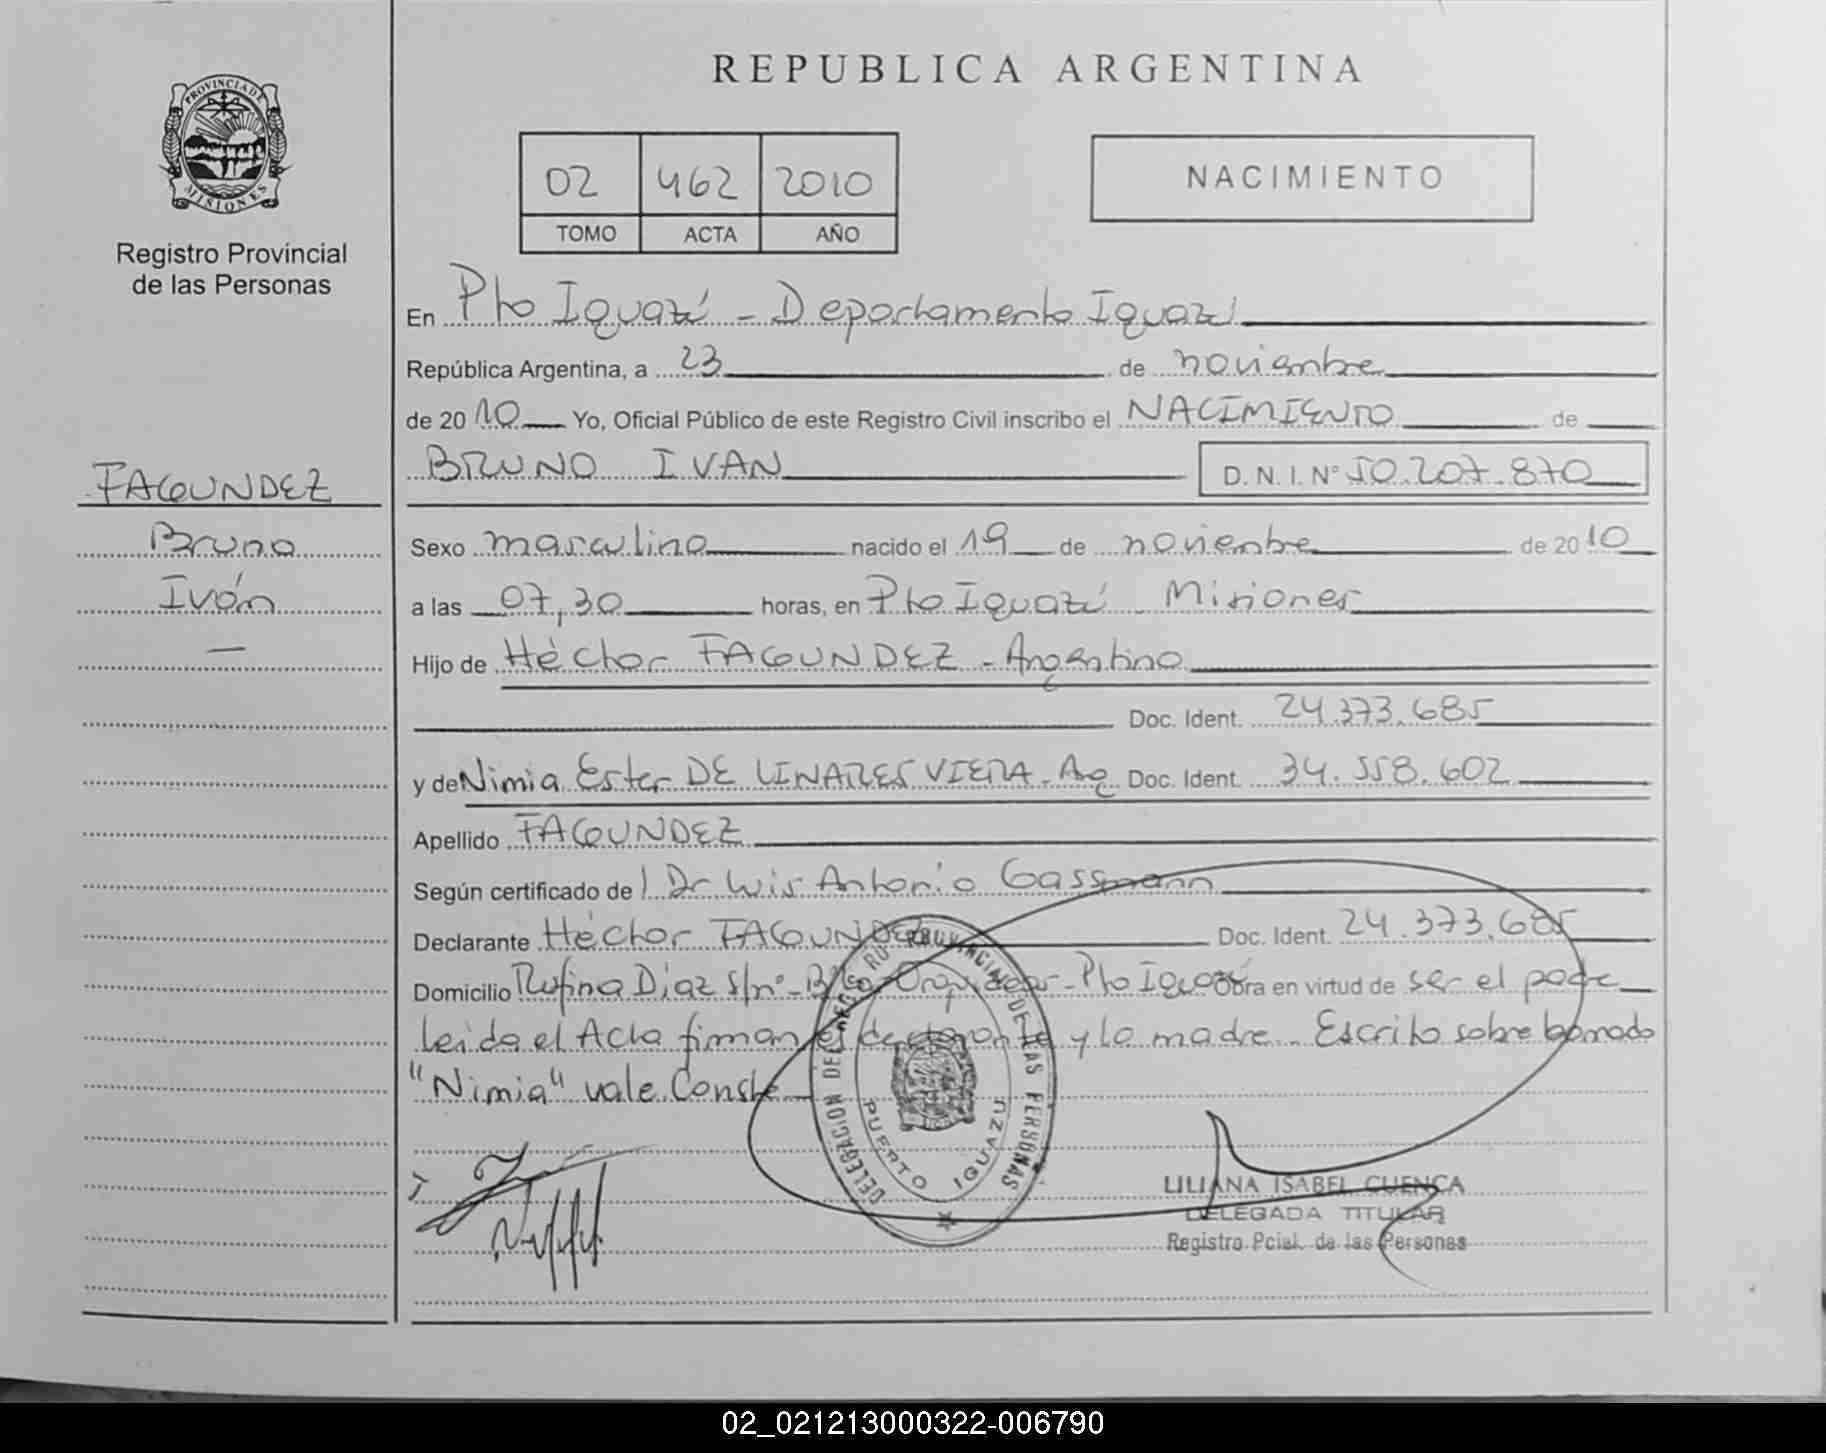 REPUBLICA ARGENTINA
PROVINCIA DE
MISIONES
Registro Provincial
de las Personas
02 462 2010
TOMO ACTA AÑO
NACIMIENTO
En Pto Iguazú - Departamento Iguazú
República Argentina, a 23 de noviembre
de 2010 Yo, Oficial Público de este Registro Civil inscribo el NACIMIENTO de
BRUNO IVAN D.N.I. Nº 50.207.870
FAGUNDEZ
Bruno
Iván
—
Sexo masculino nacido el 19 de noviembre de 2010
a las 07,30 horas, en Pto Iguazú Misiones
Hijo de Héctor FAGUNDEZ - Argentino
Doc. Ident. 24.373.685
y de Nimia Ester DE LINARES VIERA - Ag Doc. Ident. 34.558.602
Apellido FAGUNDEZ
Según certificado de l Dr Luis Antonio Gassmann
Declarante Héctor FAGUNDEZ Doc. Ident. 24.373.685
Domicilio Rufina Diaz s/nº - Bº Pto Iguazú obra en virtud de ser el padre
Leida el Acta firman el declarante y la madre - Escrito sobre borrado
"Nimia" vale Conste
DELEGACION DEL REGISTRO PROVINCIAL DE LAS PERSONAS
PUERTO IGUAZU
LILIANA ISABEL CUENCA
DELEGADA TITULAR
Registro Pcial. de las Personas
02_021213000322-006790